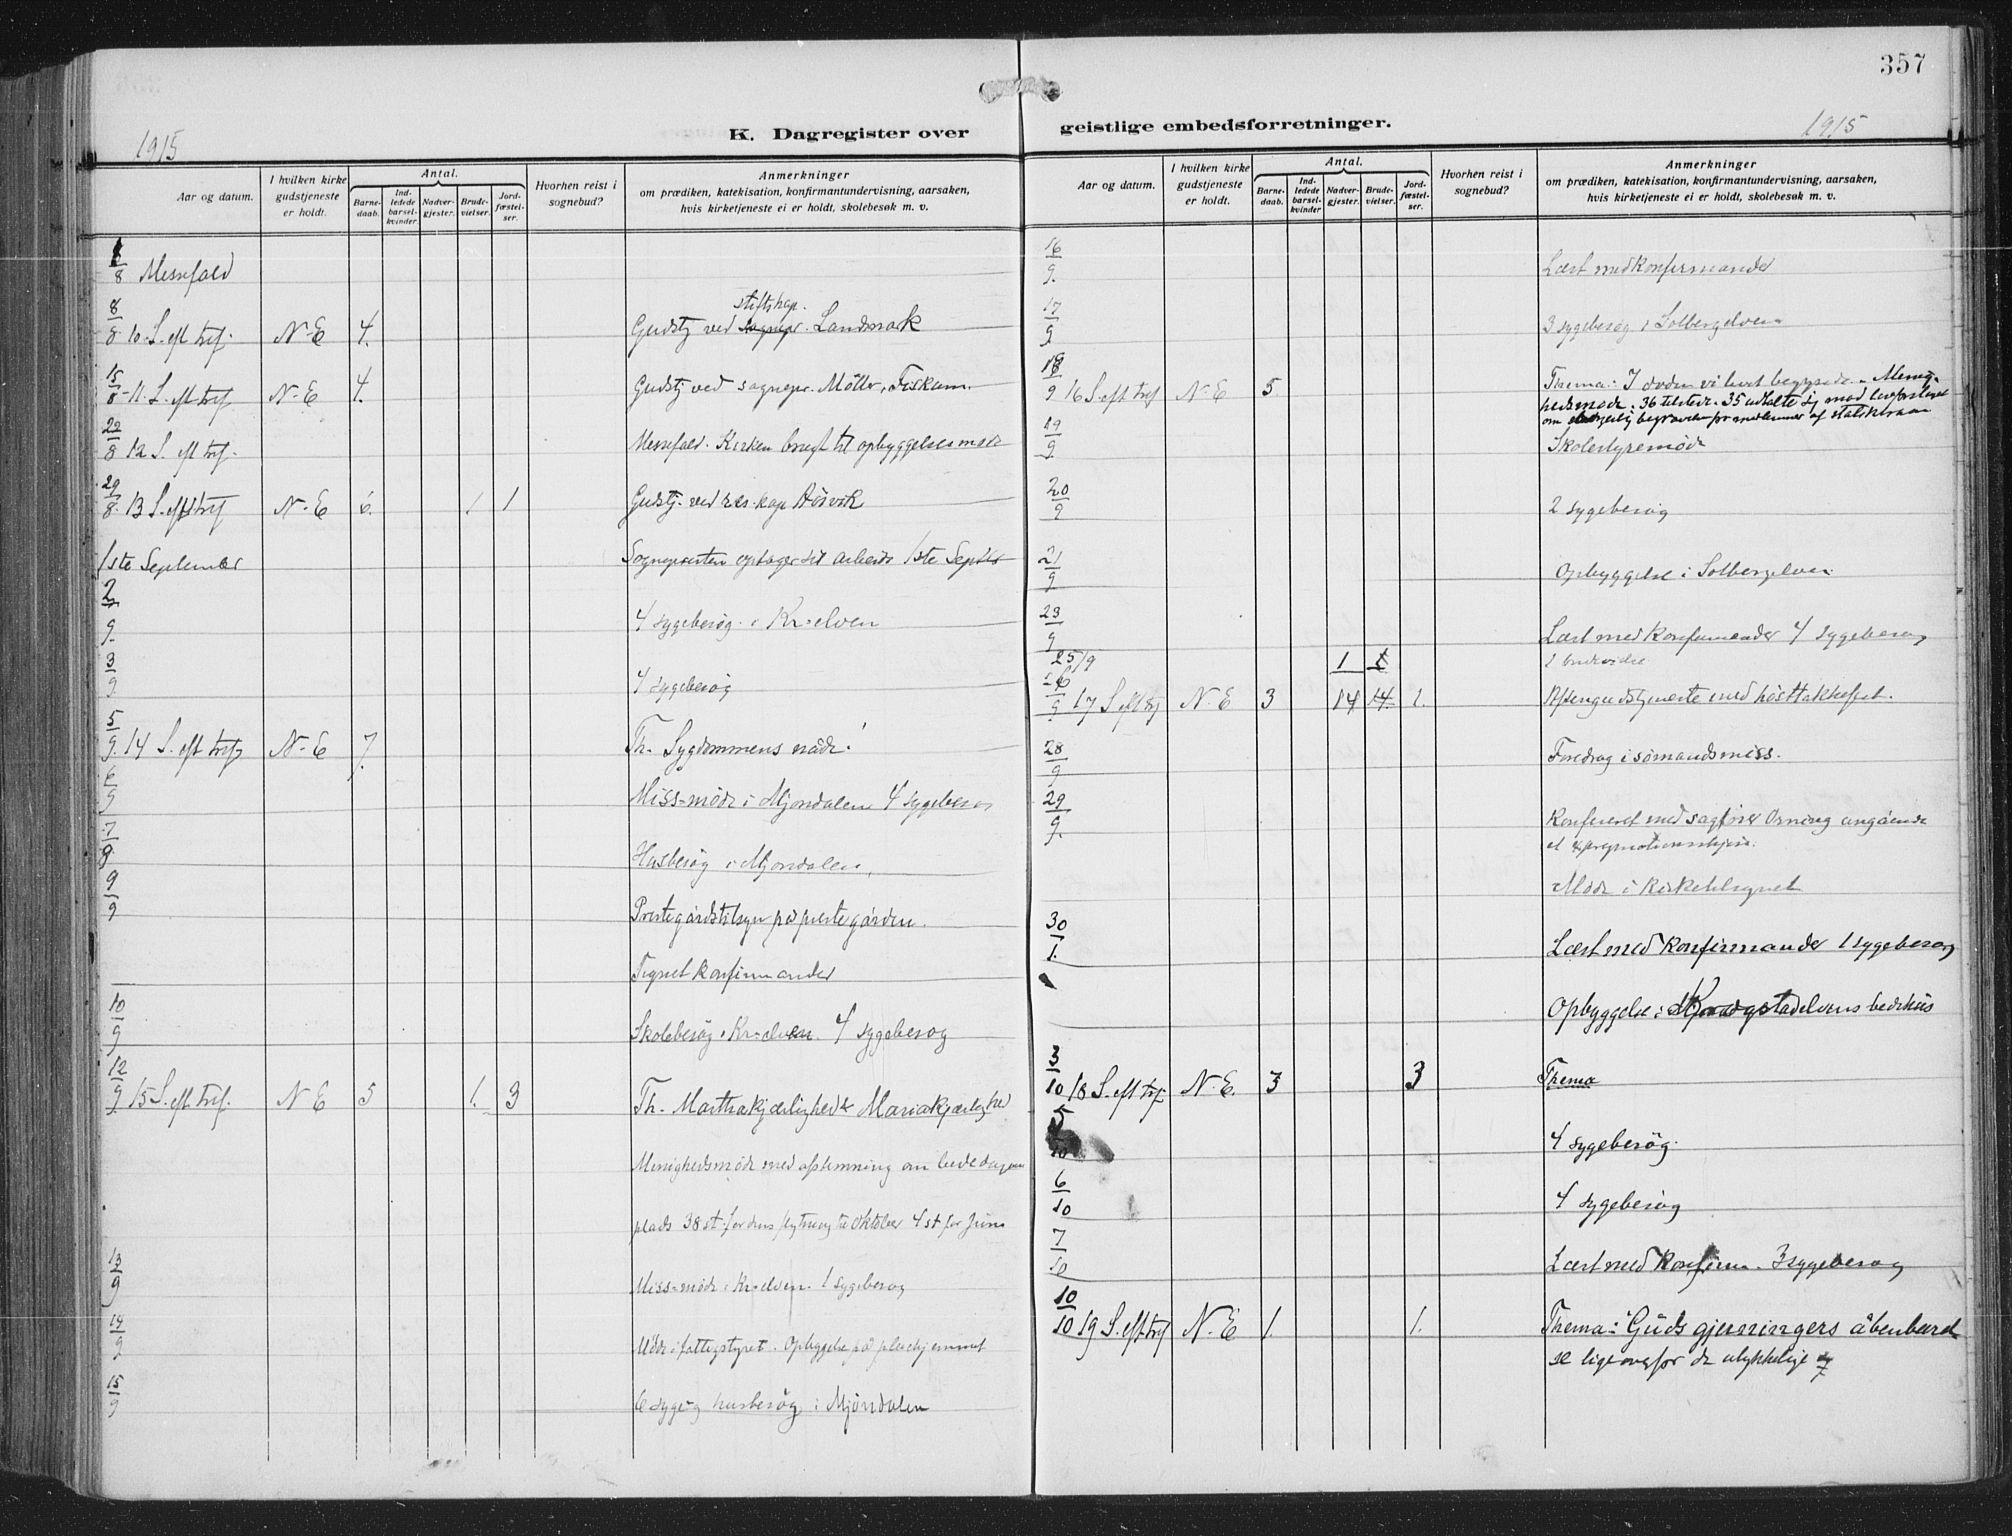 357
1915
K. Dagregister over
geistlige embedsforretninger.
1915
Aar og datum.
I hvilken kirke gudstjeneste er holdt.
Antal.
Barnedaab.
Indledede barselkvinder.
Nadvergjester.
Brudevielser.
Jordfæstelser.
Hvorhen reist i sognebud?
Anmerkninger
om prædiken, katekisation, konfirmantundervisning, aarsaken,
hvis kirketjeneste ei er holdt, skolebesøk m. v.
8 Messefald
8/8 10 S. eft tref. N-E 4. Gudstj ved stiftskap. Landmark
15/8 11 S. eft tref N-E 4. Gudstj ved sognepr. Möller, Fiskum.
22/8 12 S. eft tref. Messefald. Kirken brugt til opbyggelsesmöde
29/8 13 S. eft tref N-E 6. 1 1 Gudstj. ved res. kap
1ste September Sognepresten optager sit arbeide 1ste Septbr
2/9 4 sygebesøg i Kr-elven
3/9 4 sygebesøg
5/9 14 S. eft tref N-E 7. Th. Sygdommens nåde!
6/9 Miss-møde i Mjöndalen 4 sygebesøg
7/9 Husbesøg i Mjöndalen.
9/9 Prestegårdstilsyn på prestegården.
Tegnet konfirmander
10/9 Skolebesøg i Kr-elven. 4 sygebesøg
12/9 15 S. eft tref. N E 5 1. 3 Th. Marthakjærlighed & Mariakjærlighed
Menighedsmöde med afstemning om bededagens
plads 38 st. for dens flytning til Oktober 4 st for Juni
13/9 Miss-møde i Kr-elven. 1 sygebesøg
14/9 Møde i fattigstyret. Opbyggelse på pleiehjemmet
15/9 6 syge- og husbesøg i Mjöndalen
Aar og datum.
I hvilken kirke gudstjeneste er holdt.
Antal.
Barnedaab.
Indledede barselkvinder
Nadvergjester.
Brudevielser.
Jordfæstelser.
Hvorhen reist i sognebud?
Anmerkninger
om prædiken, katekisation, konfirmantundervisning, aarsaken,
hvis kirketjeneste ei er holdt, skolebesøk m. v.
16/9. Læst med konfirmander
17/9 3 sygebesøg i Solbergelven
9 16 S. eft tref N-E 5. Thema: I døden vi livet begynde. Menig-
hedsmøde. 36 tilstede. 35 udtalte sig mod lovforslaget
om begravelse for medlemmer af statskirken
19/9. Skolestyremöde
20/9 2 sygebesøg
21/9 Opbyggelse i Solbergelven
23/9 Læst med konfirmander 4 sygebesøg
25/9 1 1 1 brudevielse
26/9 17 S. eft tref N-E 3 14 14. 1. Aftengudstjeneste med høsttakkefest.
28/9 Foredrag i sömandsmiss.
29/9. Konfereret med sagförer Orning angående
Møde i Kirketilsynet
30/ Læst med konfirmander 1 sygebesøg
Opbyggelse i Krogstadelvens bedehus
3/10 18 S. eft tref N. E. 3 3 Thema
5/10 4 sygebesøg.
6/10 4 sygebesøg
7/10 Læst med konfirm. 3 sygebesøg
10/10 19 S. eft tref N. E 1. 1. Thema: Guds gjerningers åbenbarel
se ligeoverfor de ulykkelige